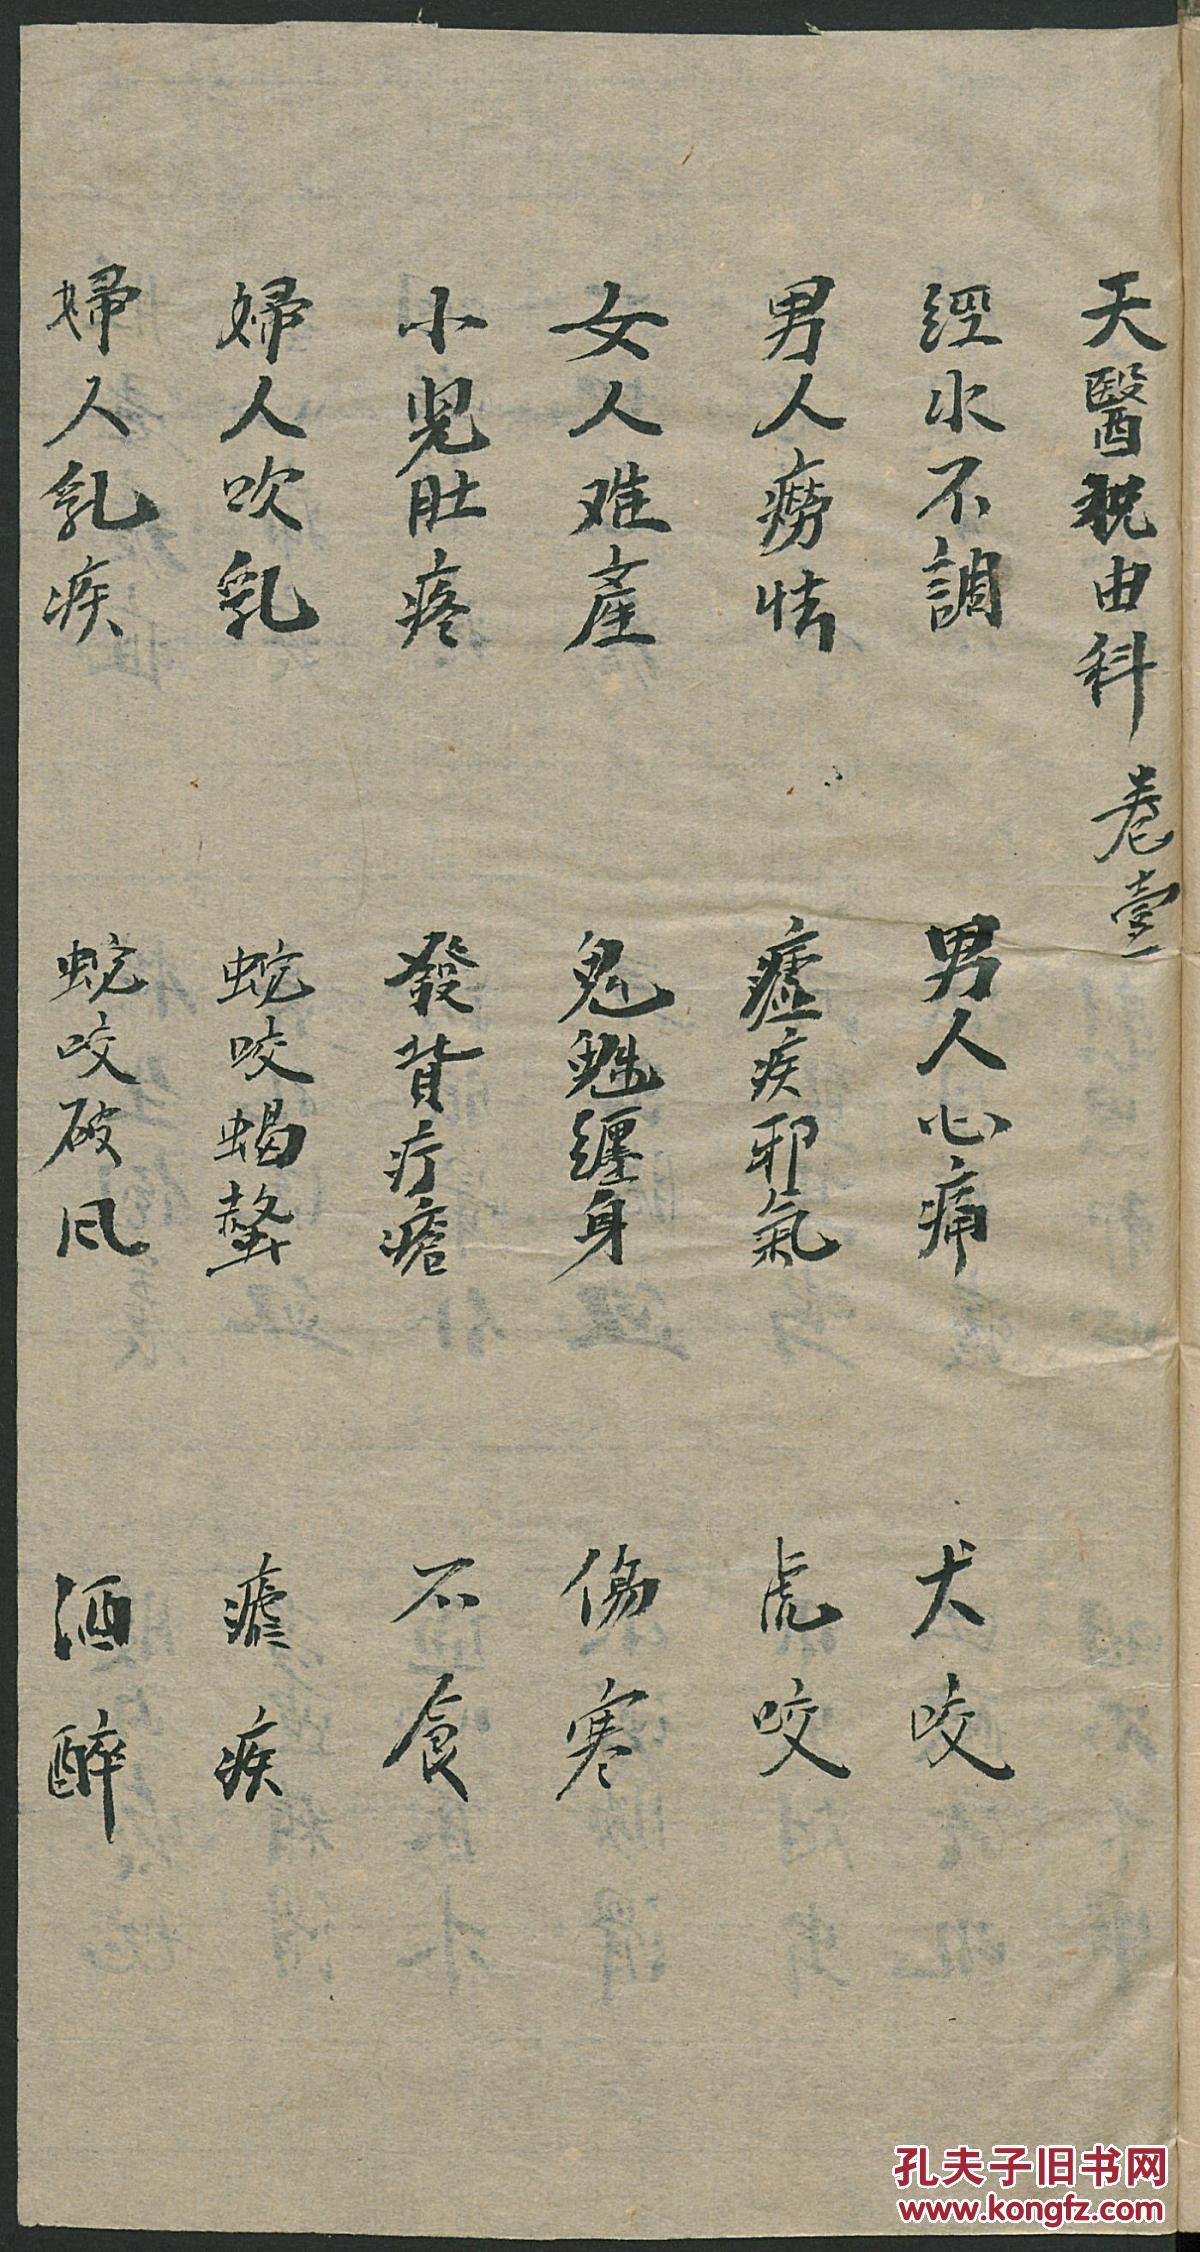 天醫祝由科 卷壹
經水不調 男人心痛 犬咬
男人癆怯 瘧疾邪氣 虎咬
女人难產 鬼魅纏身 傷寒
小兒肚疼 發背疔瘡 不食
婦人吹乳 蛇咬蝎螫 瘧疾
婦人乳疾 蛇咬破风 酒醉
孔夫子旧书网
www.kongfz.com